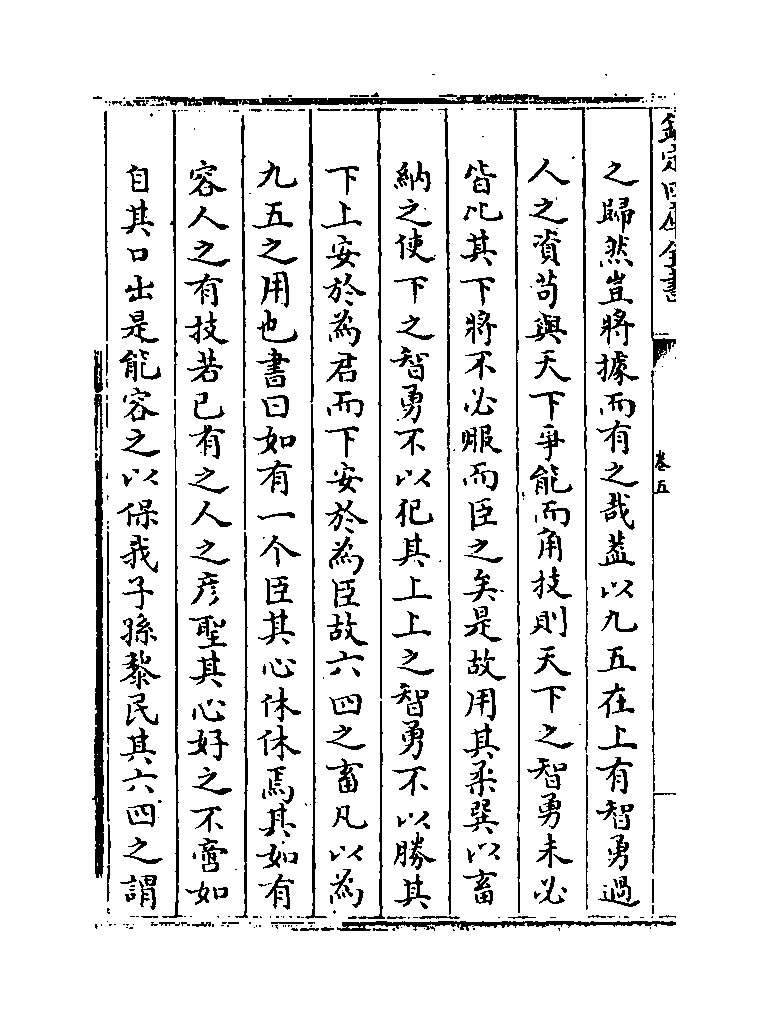 欽定四庫全書
卷五
之歸然豈將據而有之哉葢以九五在上有智勇過
人之資苟與天下爭能而角技則天下之智勇未必
皆比其下將不必服而臣之矣是故用其柔巽以畜
納之使下之智勇不以犯其上上之智勇不以勝其
下上安於為君而下安於為臣故六四之畜凡以為
九五之用也書曰如有一个臣其心休休焉其如有
容人之有技若已有之人之彦聖其心好之不啻如
自其口出是能容之以保我子孫黎民其六四之謂